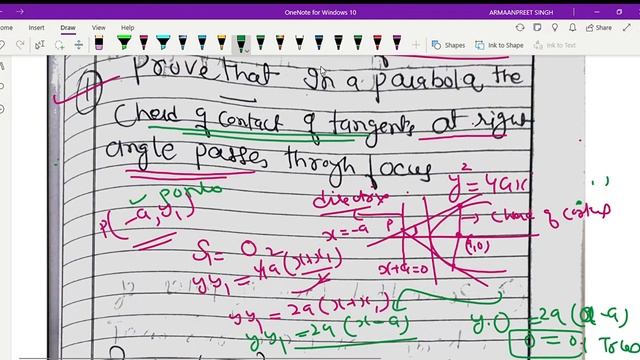 OneNote for Windows 10
ARMAANPREET SINGH
Insert Draw View
Shapes Ink to Shape Ink to Text
1 Prove that In a parabola the
Chord of contact of tangents at right
angle passes through focus
P(-a, y₁)
directrix
y² = 4ax
x=-a P
Chord of contact
(a,0)
x+a=0
S₁ = 0
yy₁ = 4a(x+x₁)/2
yy₁ = 2a(x+x₁)
yy₁ = 2a(x-a)
y.0 = 2a(a-a)
0 = 0 True